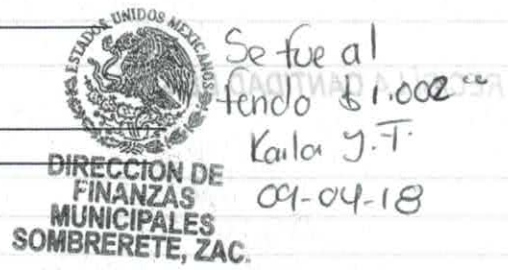 ESTADOS UNIDOS MEXICANOS
DIRECCION DE
FINANZAS
MUNICIPALES
SOMBRERETE, ZAC.
Se fue al
fendo $1.002
Karla J.T.
09-04-18